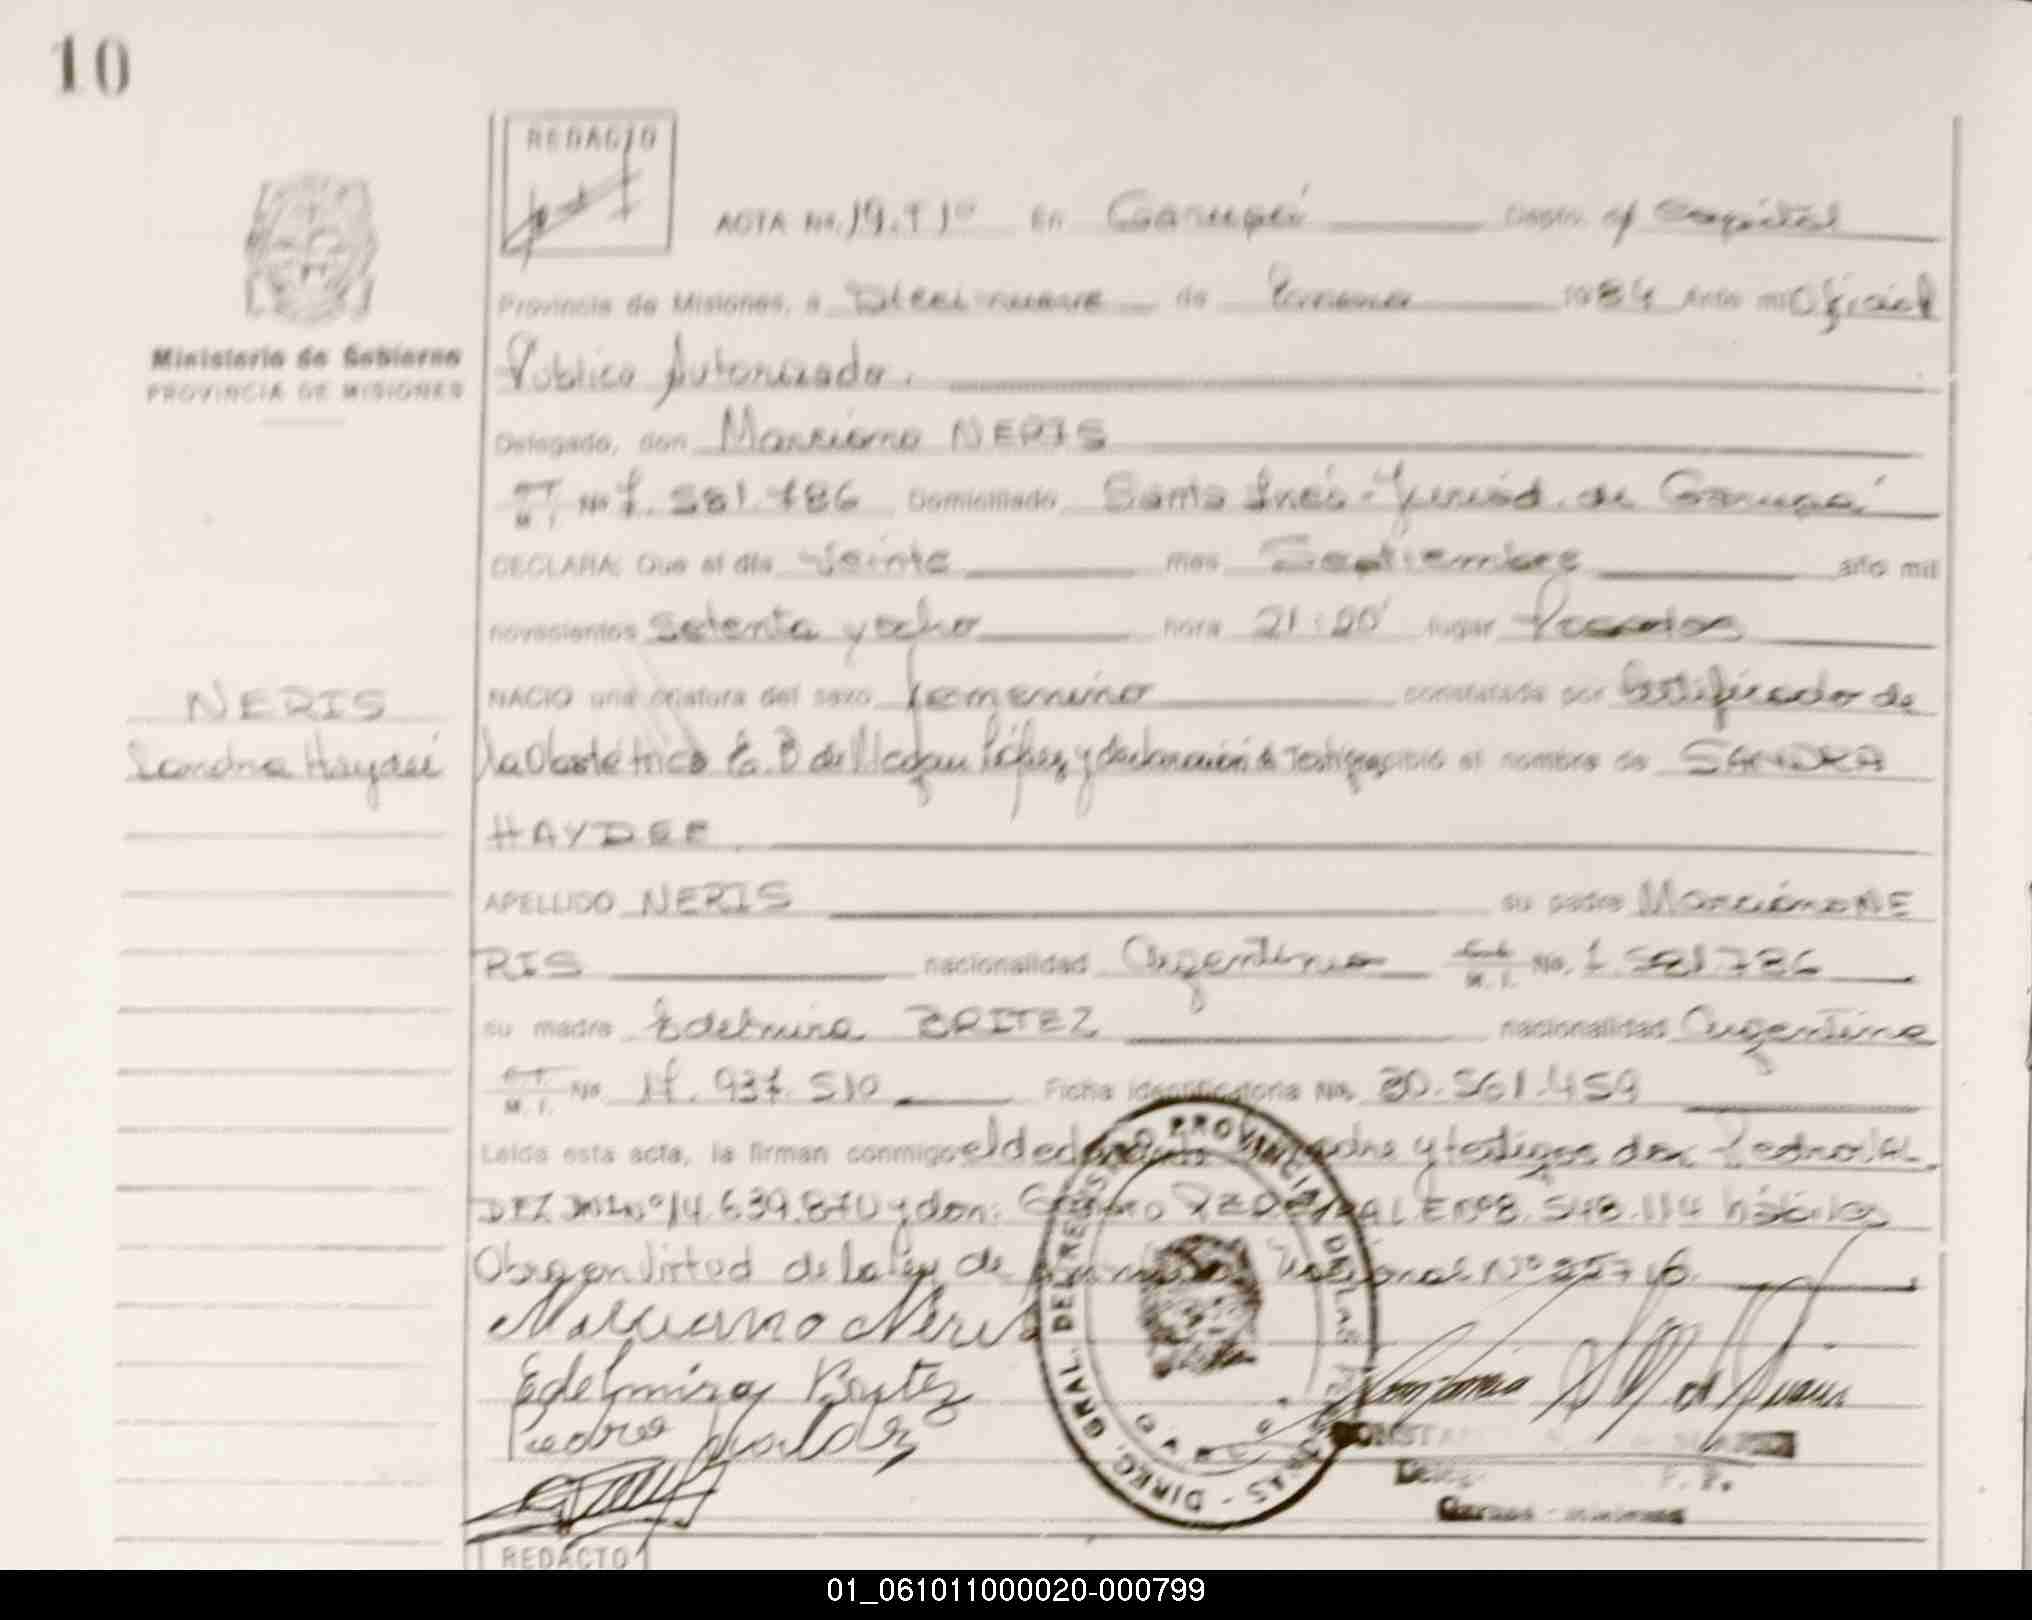 10
REDACTO
ACTA No. 19. T 1º En Garupá Depto. Capital
Provincia de Misiones, a Diecinueve de Enero 1984 Ante mi Oficial
Ministerio de Gobierno
PROVINCIA DE MISIONES
Público Autorizado.
Delegado, don Marciano NERIS
M. I. No 7.581.786 Domiciliado Santa Inés - Jurisd. de Garupá
DECLARA: Que el día Veinte mes Septiembre año mil
novecientos setenta y ocho hora 21:20' lugar Posadas
NERIS
Sandra Haydeé
NACIO una criatura del sexo femenino constatada por Certificado de
la Obstétrica López y declaración de Testigos el nombre de SANDRA
HAYDEE.
APELLIDO NERIS su padre Marciano NE
RIS nacionalidad Argentino M. I. No. 7.581.786
su madre Edelmira BRITEZ nacionalidad Argentina
M. I. No 17.937.510 Ficha identificatoria No. 30.561.459
Leída esta acta, la firman conmigo el declarante madre y testigos don Pedro VAL
DEZ DNI Nº 14.639.870 y don: L E Nº 8.548.114 hábiles
Obra en Virtud de la ley de Nacional Nº 22716
Marciano Neris
Edelmira Britez
Pedro Valdez
DIREC. GRAL. DEL REGISTRO PROVINCIAL DE LAS PERSONAS
Garupá - Misiones
REDACTO
01_061011000020-000799